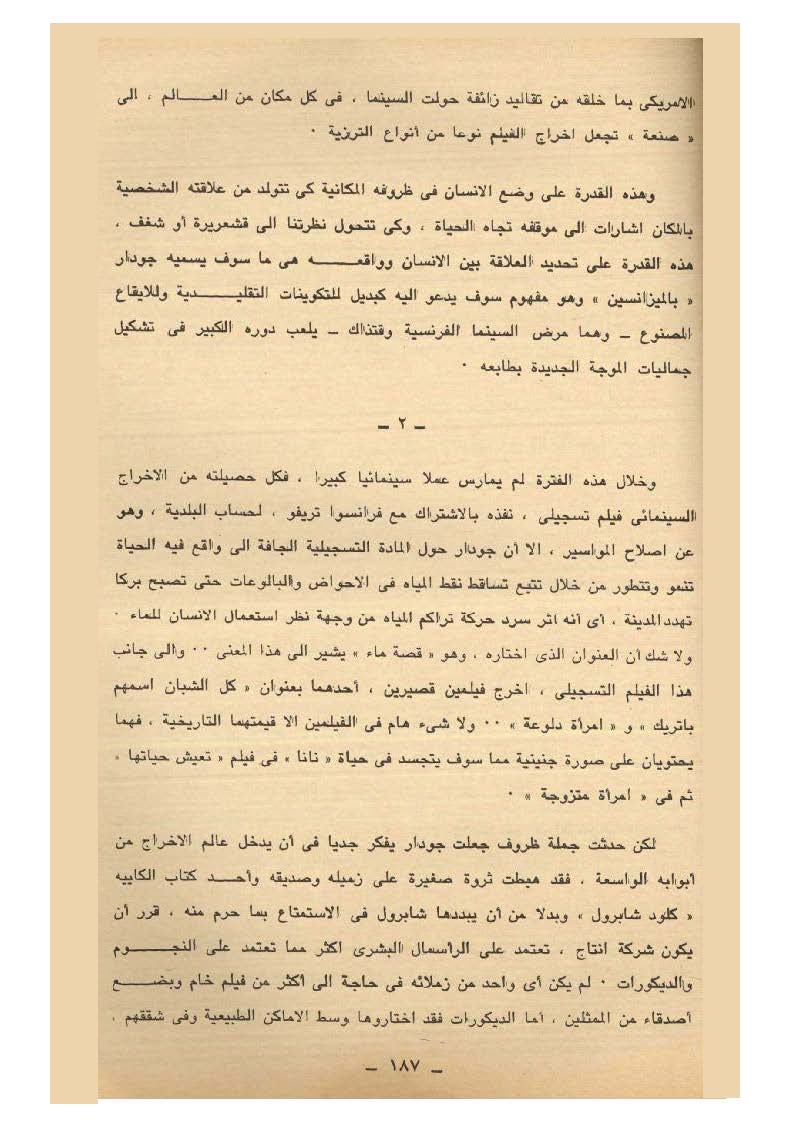 الامريكى بما خلقه من تقاليد زائفة حولت السينما ، فى كل مكان من العـــالم ، الى
« صنعة » تجعل اخراج الفيلم نوعا من أنواع الترزية ٠
وهذه القدرة على وضع الانسان فى ظروفه المكانية كى تتولد من علاقته الشخصية
بالمكان اشارات الى موقفه تجاه الحياة ، وكى تتحول نظرتنا الى قشعريرة أو شغف ،
هذه القدرة على تحديد العلاقة بين الانسان وواقعـــــه هى ما سوف يسميه جودار
« بالميزانسين » وهو مفهوم سوف يدعو اليه كبديل للتكوينات التقليـــدية وللايقاع
المصنوع ــ وهما مرض السينما الفرنسية وقتذاك ــ يلعب دوره الكبير فى تشكيل
جماليات الموجة الجديدة بطابعه ٠
ــ ٢ ــ
وخلال هذه الفترة لم يمارس عملا سينمائيا كبيرا ، فكل حصيلته من الاخراج
السينمائى فيلم تسجيلى ، نفذه بالاشتراك مع فرانسوا تريفو ، لحساب البلدية ، وهو
عن اصلاح المواسير ، الا أن جودار حول المادة التسجيلية الجافة الى واقع فيه الحياة
تنمو وتتطور من خلال تتبع تساقط نقط المياه فى الاحواض والبالوعات حتى تصبح بركا
تهدد المدينة ، أى أنه اثر سرد حركة تراكم المياه من وجهة نظر استعمال الانسان للماء ٠
ولا شك أن العنوان الذى اختاره ، وهو « قصة ماء » يشير الى هذا المعنى ٠٠ والى جانب
هذا الفيلم التسجيلى ، اخرج فيلمين قصيرين ، أحدهما بعنوان « كل الشبان اسمهم
باتريك » و « امرأة دلوعة » ٠٠ ولا شىء هام فى الفيلمين الا قيمتهما التاريخية ، فهما
يحتويان على صورة جنينية مما سوف يتجسد فى حياة « نانا » فى فيلم « تعيش حياتها »
ثم فى « امرأة متزوجة » ٠
لكن حدثت جملة ظروف جعلت جودار يفكر جديا فى أن يدخل عالم الاخراج من
أبوابه الواسعة ، فقد هبطت ثروة صغيرة على زميله وصديقه وأحـــد كتاب الكاييه
« كلود شابرول » وبدلا من أن يبددها شابرول فى الاستمتاع بما حرم منه ، قرر أن
يكون شركة انتاج ، تعتمد على الرأسمال البشرى اكثر مما تعتمد على النجـــوم
والديكورات ٠ لم يكن أى واحد من زملائه فى حاجة الى أكثر من فيلم خام وبضـــع
أصدقاء من الممثلين ، أما الديكورات فقد اختاروها وسط الاماكن الطبيعية وفى شققهم ،
ــ ١٨٧ ــ